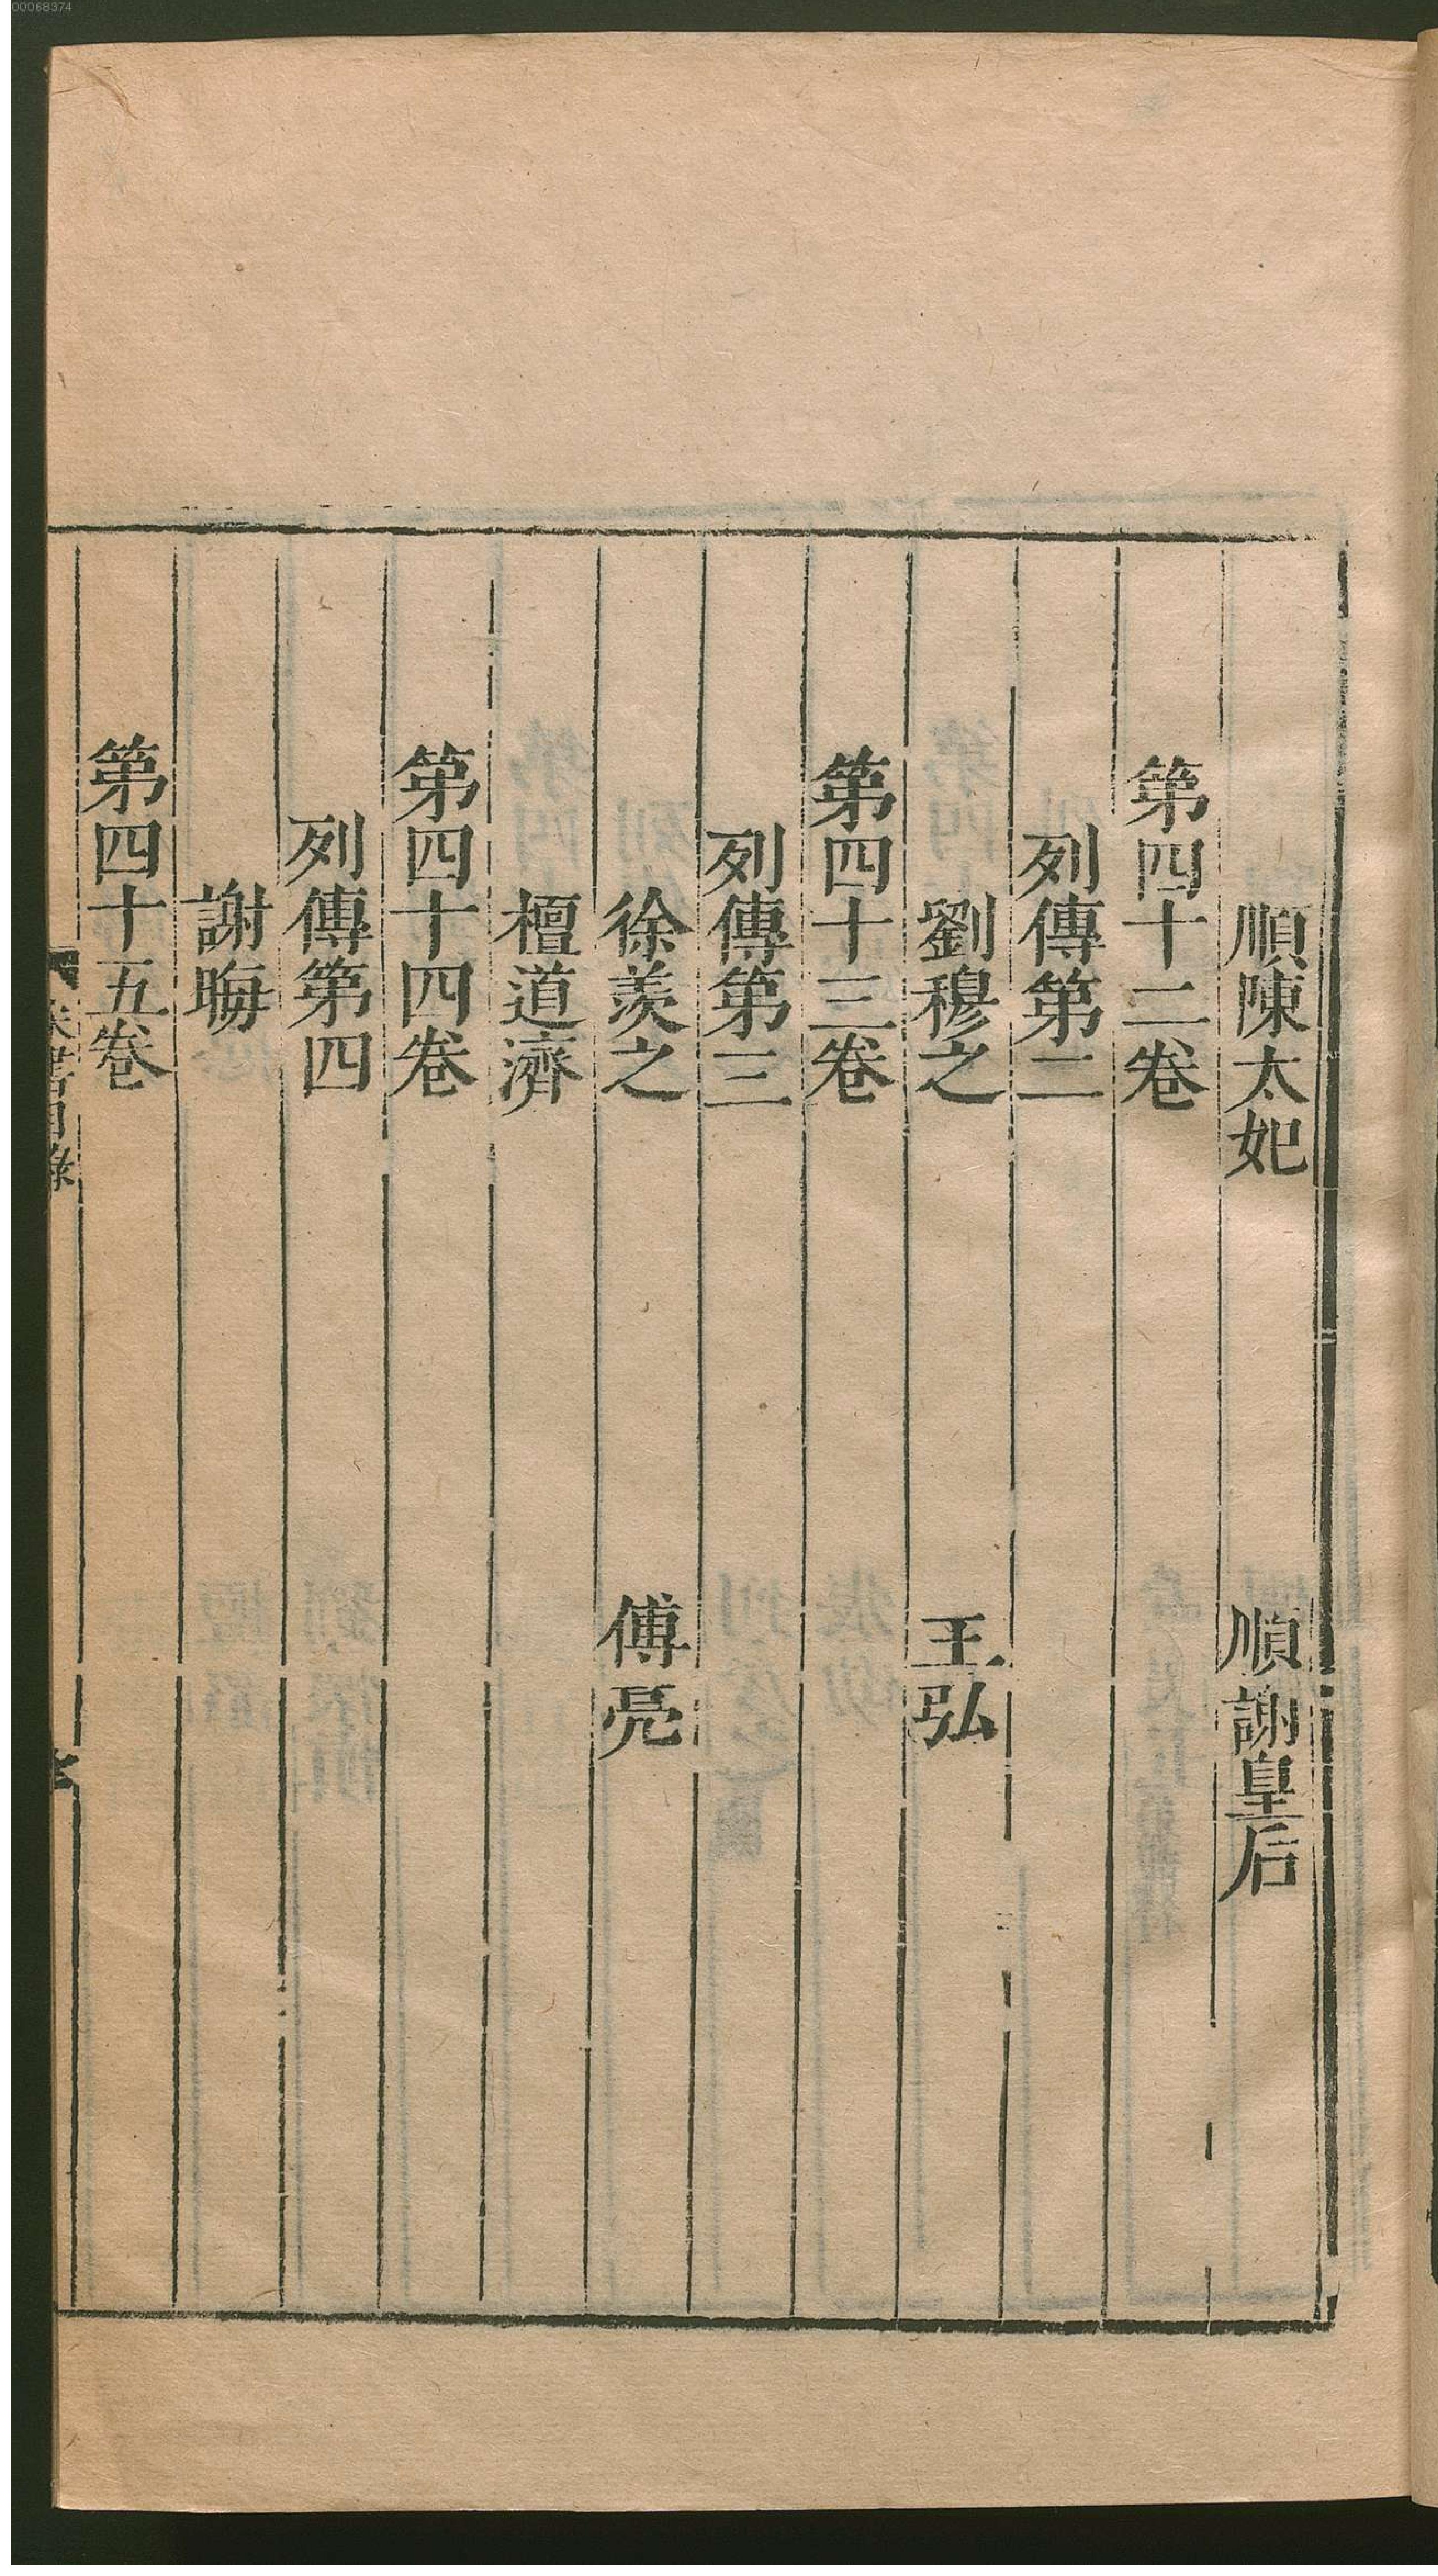 00068374
順陳太妃 順謝皇后
第四十二卷
列傳第二
劉穆之 王弘
第四十三卷
列傳第三
徐羨之 傅亮
檀道濟
第四十四卷
列傳第四
謝晦
第四十五卷
書目錄